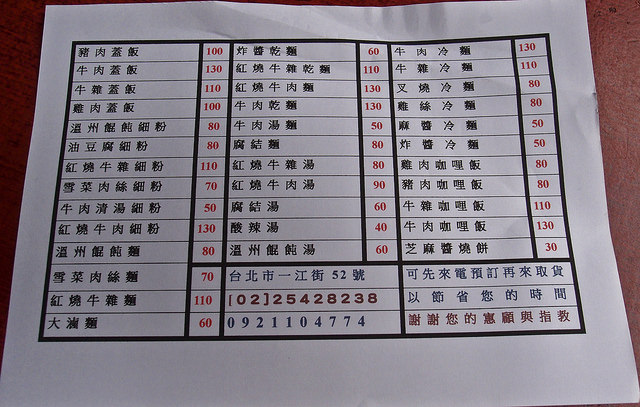 豬肉蓋飯 100 炸醬乾麵 60 牛肉冷麵 130
牛肉蓋飯 130 紅燒牛雜乾麵 110 牛雜冷麵 110
牛雜蓋飯 110 紅燒牛肉麵 130 叉燒冷麵 80
雞肉蓋飯 100 牛肉乾麵 130 雞絲冷麵 80
溫州餛飩細粉 80 牛肉湯麵 50 麻醬冷麵 50
油豆腐細粉 80 腐結麵 80 炸醬冷麵 50
紅燒牛雜細粉 110 紅燒牛雜湯 80 雞肉咖哩飯 80
雪菜肉絲細粉 70 紅燒牛肉湯 90 豬肉咖哩飯 80
牛肉清湯細粉 50 腐結湯 60 牛雜咖哩飯 110
紅燒牛肉細粉 130 酸辣湯 40 牛肉咖哩飯 130
溫州餛飩麵 80 溫州餛飩湯 60 芝麻醬燒餅 30
雪菜肉絲麵 70 台北市一江街 52 號 可先來電預訂再來取貨
紅燒牛雜麵 110 [02]25428238 以節省您的時間
大滷麵 60 0921104774 謝謝您的惠顧與指教